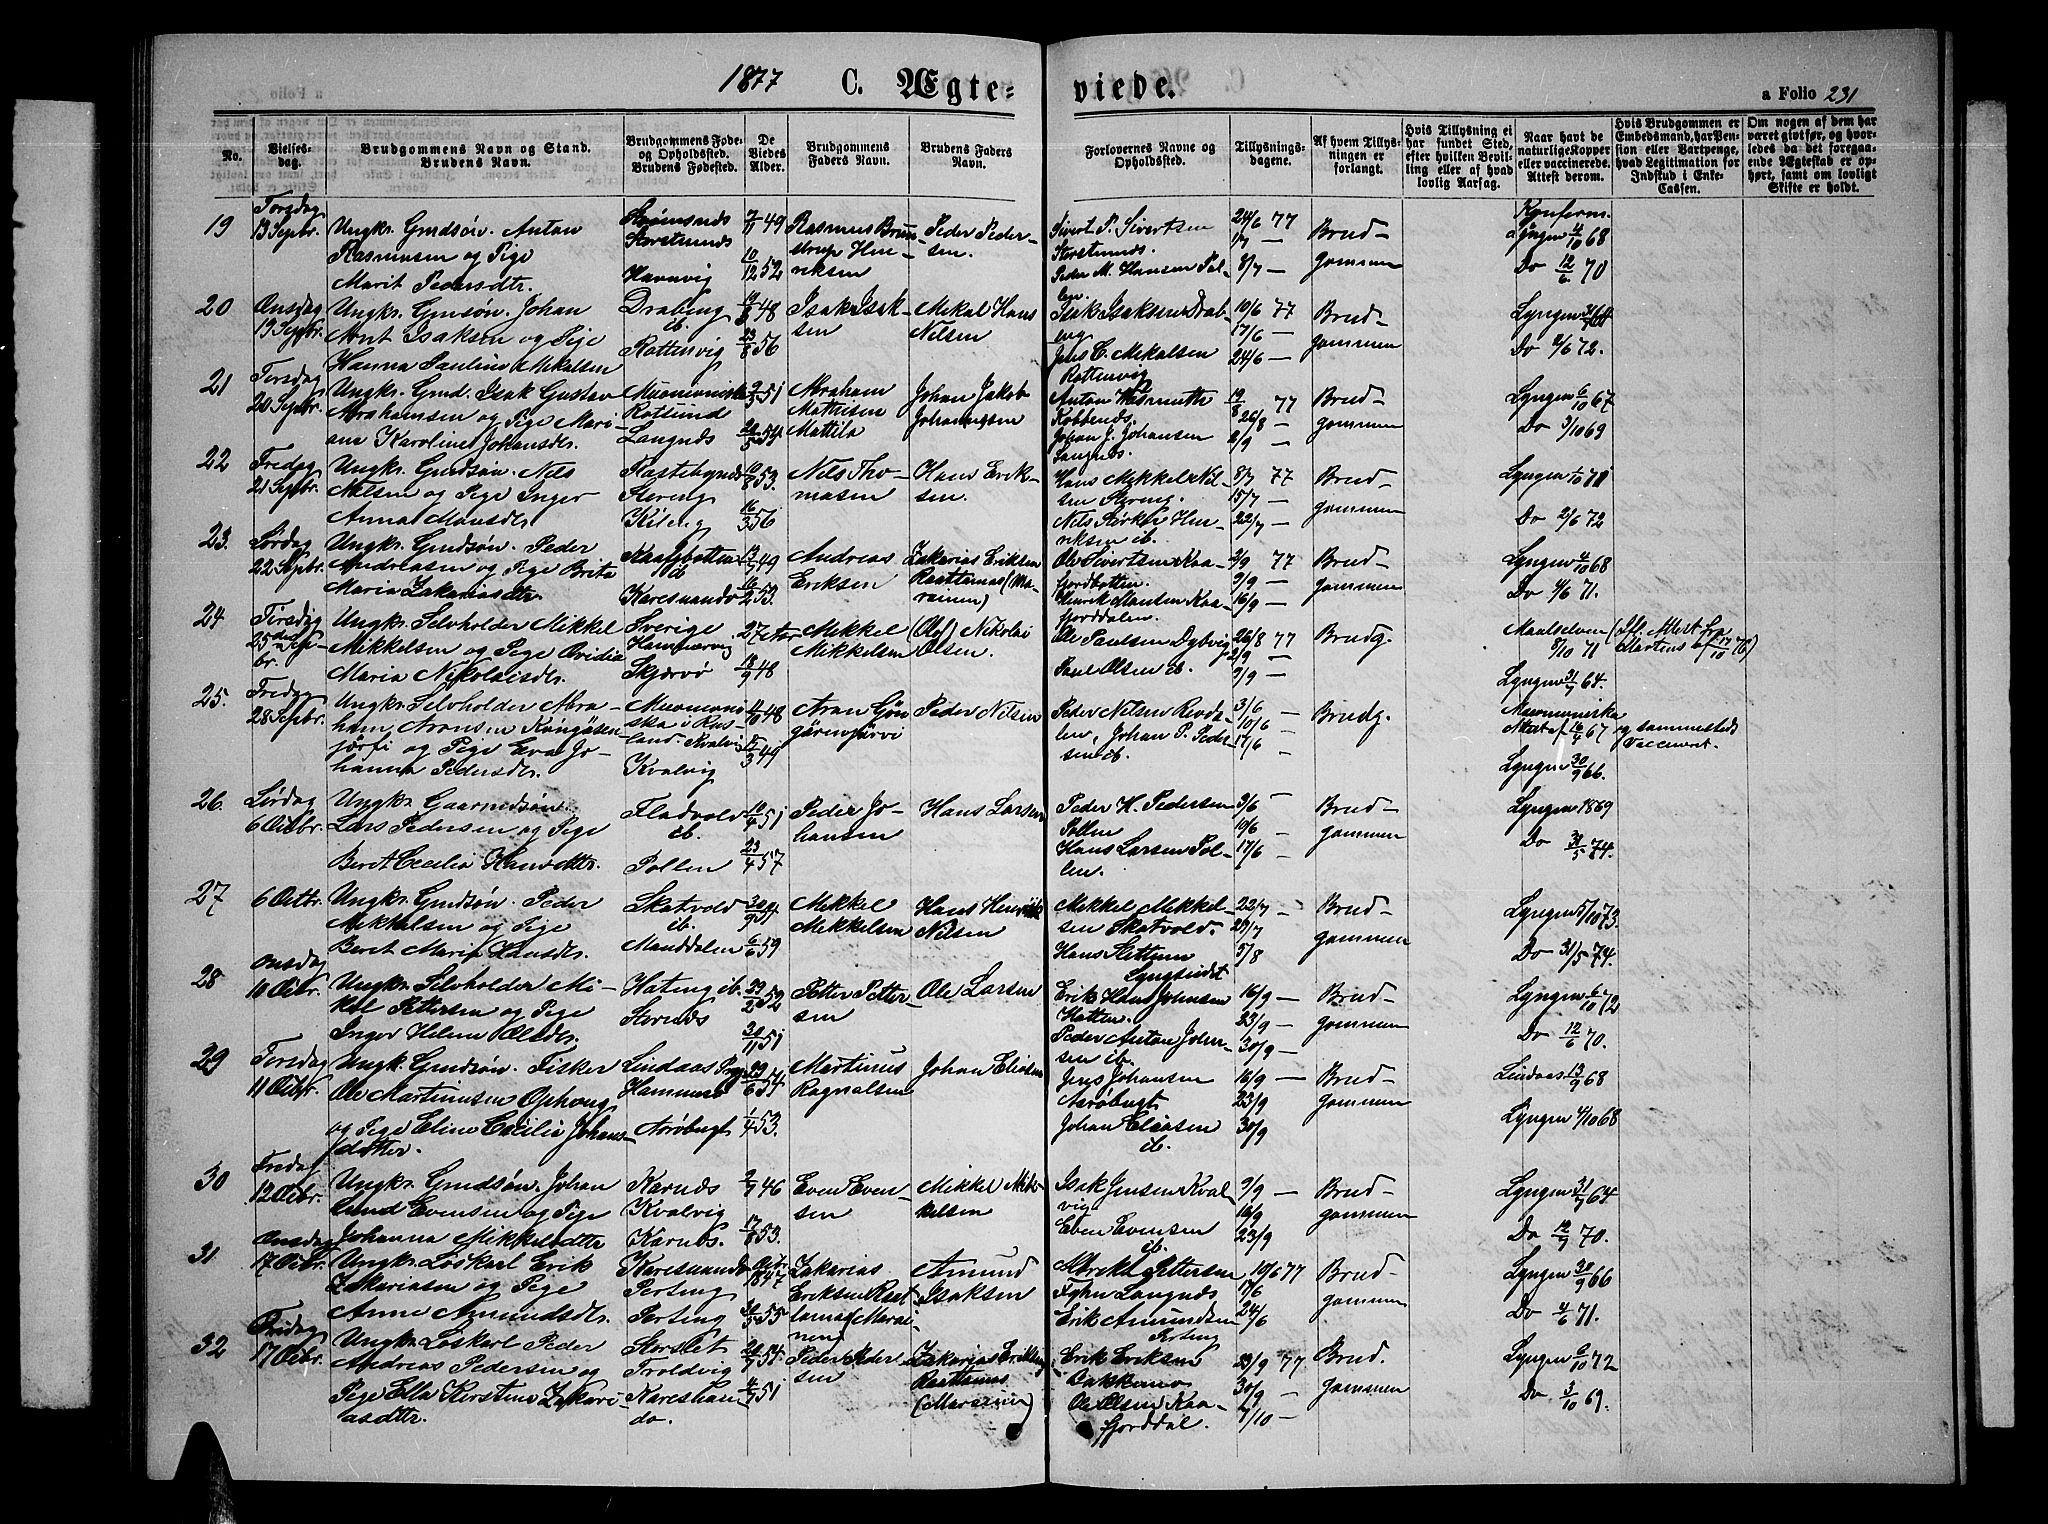 1877 C. Ægte-
viede.
a Folio 231
No.
Vielses-
dag.
Brudgommens Navn og Stand.
Brudens Navn.
Brudgommens Føde-
og Opholdssted.
Brudens Fødested.
De
Viedes
Alder.
Brudgommens
Faders Navn.
Brudens Faders
Navn.
Forlovernes Navne og
Opholdssted.
Tillysnings-
dagene.
Af hvem Tillys-
ningen er
forlangt.
Hvis Tillysning ei
har fundet Sted,
efter hvilken Bevil-
ling eller af hvad
lovlig Aarsag.
Naar havt de
naturlige Kopper
eller vaccinerede.
Attest derom.
Hvis Brudgommen er
Embedsmand, har Pen-
sion eller Vartpenge,
hvad Legitimation for
Indskud i Enke-
Cassen.
Om nogen af dem har
været givt før, og hvor-
ledes da det foregaa-
ende Ægteskab er op-
hørt, samt om lovligt
Skifte er holdt.
19
Torsdag
13 Sepbr.
Ungkr. Grndsøn. Anton
Rasmusen og Pige
Marit Pedersdtr.
Strømsnæs
Storstrands
Havnvig
7/11 49
10/12 52
Rasmus Brun
strup Hen-
riksen
Peder Peder-
sen.
Sivert P. Sivertsen
Peder M. Hansen Pol-
len.
24/6 77
1/7 —
8/7 —
Brud-
gommen
Konferm.
Lyngen 4/10 68
Do 12/6 70
20
Onsdag
19 Sepbr.
Ungkr. Grnsøn. Johan
Arnt Isaksen og Pige
Hanna Pauline Mikalsen
Drabeng
ib.
Rottenvig
48
23/8 56
Isak Isak-
sen
Mikal Hans
Nilsen
Isak Isaksen Drab-
eng
Jens C. Mikalsen
Rottenvig
10/6 77
17/6 —
24/6 —
Brud-
gommen
Lyngen
Do 2/6 72.
21
Torsdag
20 Sepbr.
Ungkr. Grnd. Isak Gustav
Abrahamsen og Pige Mari-
ane Karoline Johansdr.
Muonionisk
Rotsund
Langnæs
51
54
Abraham
Mathisen
Mattila
Johan Jakob
Johannesen
Anton Wesmuth
Kobbenæs
Johan J. Johansen
Langnæs.
19/8 77
26/8 —
2/9 —
Brud-
gommen
Lyngen 6/10 67
Do 3/10 69
22
Fredag
21 Sepbr.
Ungkr. Grndsøn. Nils
Nilsen og Pige Inger
Anna Hansdr.
Storeng
Kileng
10/8 53.
16/3 56
Nils Tho-
masen
Hans Erik-
sen.
Hans Mikkel Nil-
sen Storeng.
Nils Størker Hen-
riksen ib.
8/7 77
15/7 —
22/7 —
Brud-
gommen
Lyngen 1/10 71
Do 2/6 72
23.
Lørdag
22 Sepbr.
Ungkr. Grndsøn. Peder
Andreasen og Pige Brita
Maria Zakariasdtr.
Kaafjbotten
ib
Karesuando
13/7 49
16/2 53.
Andreas
Eriksen
Zakarias Eriksen
Raattamas (Ma-
rainen)
Ole Sivertsen Kaa-
fjordbotten.
Henrik Monsen Kaa-
fjorddalen.
2/9 77
9/9 —
16/9 —
Brud-
gommen
Lyngen 4/10 68
Do 4/6 71.
24
Tirsdag
25de Sep-
br.
Ungkr. Selvholder Mikkel
Mikkelsen og Pige Ovidia
Maria Nikolaisdr.
Sverige
Hamnnæsvig
Skjærvø
27 etar
18/9 48
Mikkel
Mikkelsen
(Ole) Nikolai
Olsen.
Ole Paulsen Dybvig
Paul Olsen ib.
26/8 77
2/9 —
9/9 —
Brudg.
Maalselven
8/10 71
(Ifl. Attest fra
Martins af 17/10 76)
Lyngen 31/7 64.
25.
Fredag
28 Sepbr.
Ungkr. Selvholder Abra-
ham Aronsen Køngäsen-
järfi og Pige Eva Jo-
hanna Pedersdr.
Muonioni-
ska i Rus-
land. Kvalvig
Kvalvig
11/10 48
15/3 49
Aron Gön
gärenjärvi
Peder Nilsen
Peder Nilsen Revda-
len, Johan P. Peder-
sen ib.
3/6 —
10/6 —
17/6 —
Brudg.
Muonioniska
Attest af 16/4 67
og sammesteds
Vaccinert.
Lyngen 30/9 66.
26.
Lørdag
6 Octbr.
Ungkr. Gaarmdsøn.
Lars Pedersen og Pige
Beret Cecilia Hansdtr.
Fladvold
ib.
Pollen
10/4 51
23/4 57
Peder Jo-
hansen
Hans Larsen
Peder H. Pedersen
Pollen
Hans Larsen Pol-
len.
3/6 —
10/6
17/6
Brud-
gommen
Lyngen 1869
Do 31/5 74.
27
6 Octbr.
Ungkr. Grndsøn. Peder
Mikkelsen og Pige
Beret Maria Hansdr.
Skatvold
ib.
Manddalen
30/9 54
6/6 59
Mikkel
Mikkelsen
Hans Henrik
Nilsen
Mikkel Mikkel-
sen Skatvold.
Hans Slettum
Lyngseidet
22/7 —
29/7
5/8
Brud-
gommen
Lyngen 5/10 73.
Do 31/5 74.
28
Onsdag
10 Octbr.
Ungkr. Selvholder Mi-
kal Pettersen og Pige
Inger Helene Olsdr.
Hateng ib.
Stornæs
23/2 52
30/11 51
Petter Petter
sen
Ole Larsen
Erik Hans Johnsen
Hatten.
Peder Anton John-
sen ib.
16/9 —
23/9 —
30/9 —
Brud-
gommen
Lyngen 6/10 72
Do 12/6 70.
29
Torsdag
11 Octbr.
Ungk. Grndsøn. Fisker
Ole Martinusen Ophoug
og Pige Eline Cecilie Johans-
datter.
Lindaas
Hamnnæs
Nørøbugt
29/6 54
1/4 53.
Martinus
Ragnalsen
Johan Eliasen
Jens Johansen
Nørøbugt
Johan Eliasen
ib.
16/9 —
23/9
30/9
Brud-
gommen
Lindaas 13/9 68
Lyngen 4/10 68
30
Fredag
12 Octbr.
Ungkr. Grndsøn. Johan
Amd Evensen og Pige
Johanna Mikkelsdtr
Karnæs
Kvalvig
Karnæs.
9/7 46
17/8 53.
Even Even-
sen
Mikkel Mik-
kelsen
Isak Jensen Kval-
vig
Even Evensen
ib.
9/9 —
16/9
23/9
Brud-
gommen
Lyngen 31/7 64
Do 12/9 70.
31
Onsdag
17 Octbr.
Ungkr. Løskarl Erik
Zakariasen og Pige
Anne Amundsdr.
Karesuando
Porteng
Porteng
Octbr
1847
30/5 55
Zakarias
Eriksen Raat
tamas (Marai-
nen)
Amund
Isaksen
Albrekt Pettersen
Fyhn Langnæs
Erik Amundsen
Porteng
10/6 77
17/6
24/6
Brud-
gommen
Lyngen 30/9 66
Do 4/6 71.
32
17 Octbr.
Ungkr. Løskarl Peder
Andreas Pedersen og
Pige Ella Kirstine Zakari-
asdtr.
Storslet
Troldvig
Karesuan-
do.
54
4/7 51
Peder Peder
sen
Zakarias Eriksen
Raattamas
(Marainen)
Erik Eriksen
Ole Olsen Kaa-
fjorddal.
23/9 77
30/9
7/10 —
Brud.
gommen
Lyngen 6/10 72
Do 3/10 69.